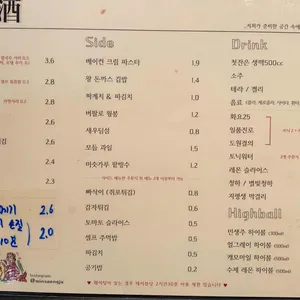 酒
Side
베이컨 크림 파스타 1.9
팜 돈까스 김밥 1.4
짜계치 & 파김치 1.2
버팔로 윙봉 1.2
새우딤섬 0.8
모듬 과일 1.5
미숫가루 팥빙수 1.2
빠삭이 (쥐포튀김) 0.8
감자튀김 0.5
토마토 슬라이스 0.5
셀프 주먹밥 0.2
파김치 0.2
공기밥 0.2
3.6
2.8
2.4
3
3
2.6
2.0
instagram
@minsaengju
Drink
첫잔은 생맥500cc
소주
테라 / 켈리
음료
화요25
일품진로
도원결의
토닉워터
레몬 슬라이스
청하 / 별빛청하
지평생 막걸리
Highball
민생주 하이볼 (300ml)
얼그레이 하이볼 (300ml)
캐모마일 하이볼 (300ml)
수제 레몬 하이볼 (300ml)